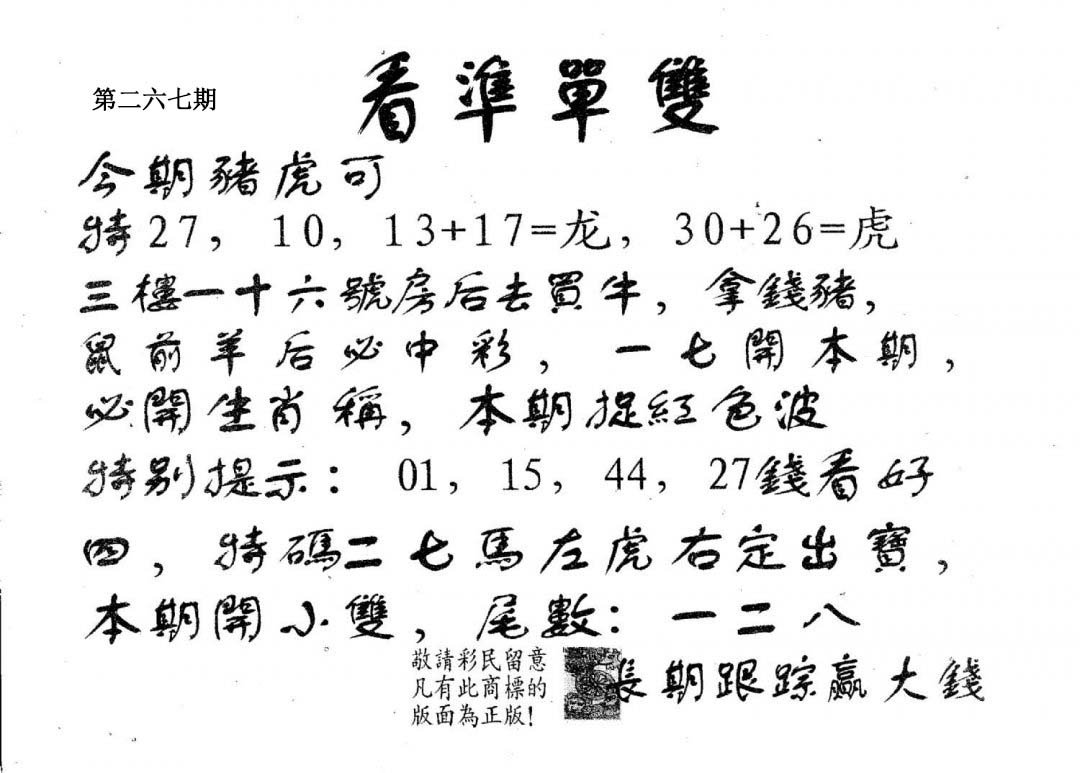 第二六七期
看準單雙
今期豬虎可
特27, 10, 13+17=龙, 30+26=虎
三樓一十六號房后去買牛，拿錢豬，
鼠前羊后必中彩，一七開本期，
必開生肖稱，本期捉紅色波
特别提示：01, 15, 44, 27錢看好
四，特碼二七馬左虎右定出寶，
本期開小雙，尾數：一二八
敬請彩民留意
凡有此商標的
版面為正版！
長期跟踪贏大錢